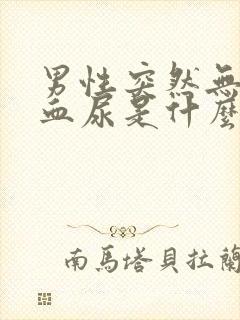 男性突然無
血尿是什麼
南馬塔貝拉蘭